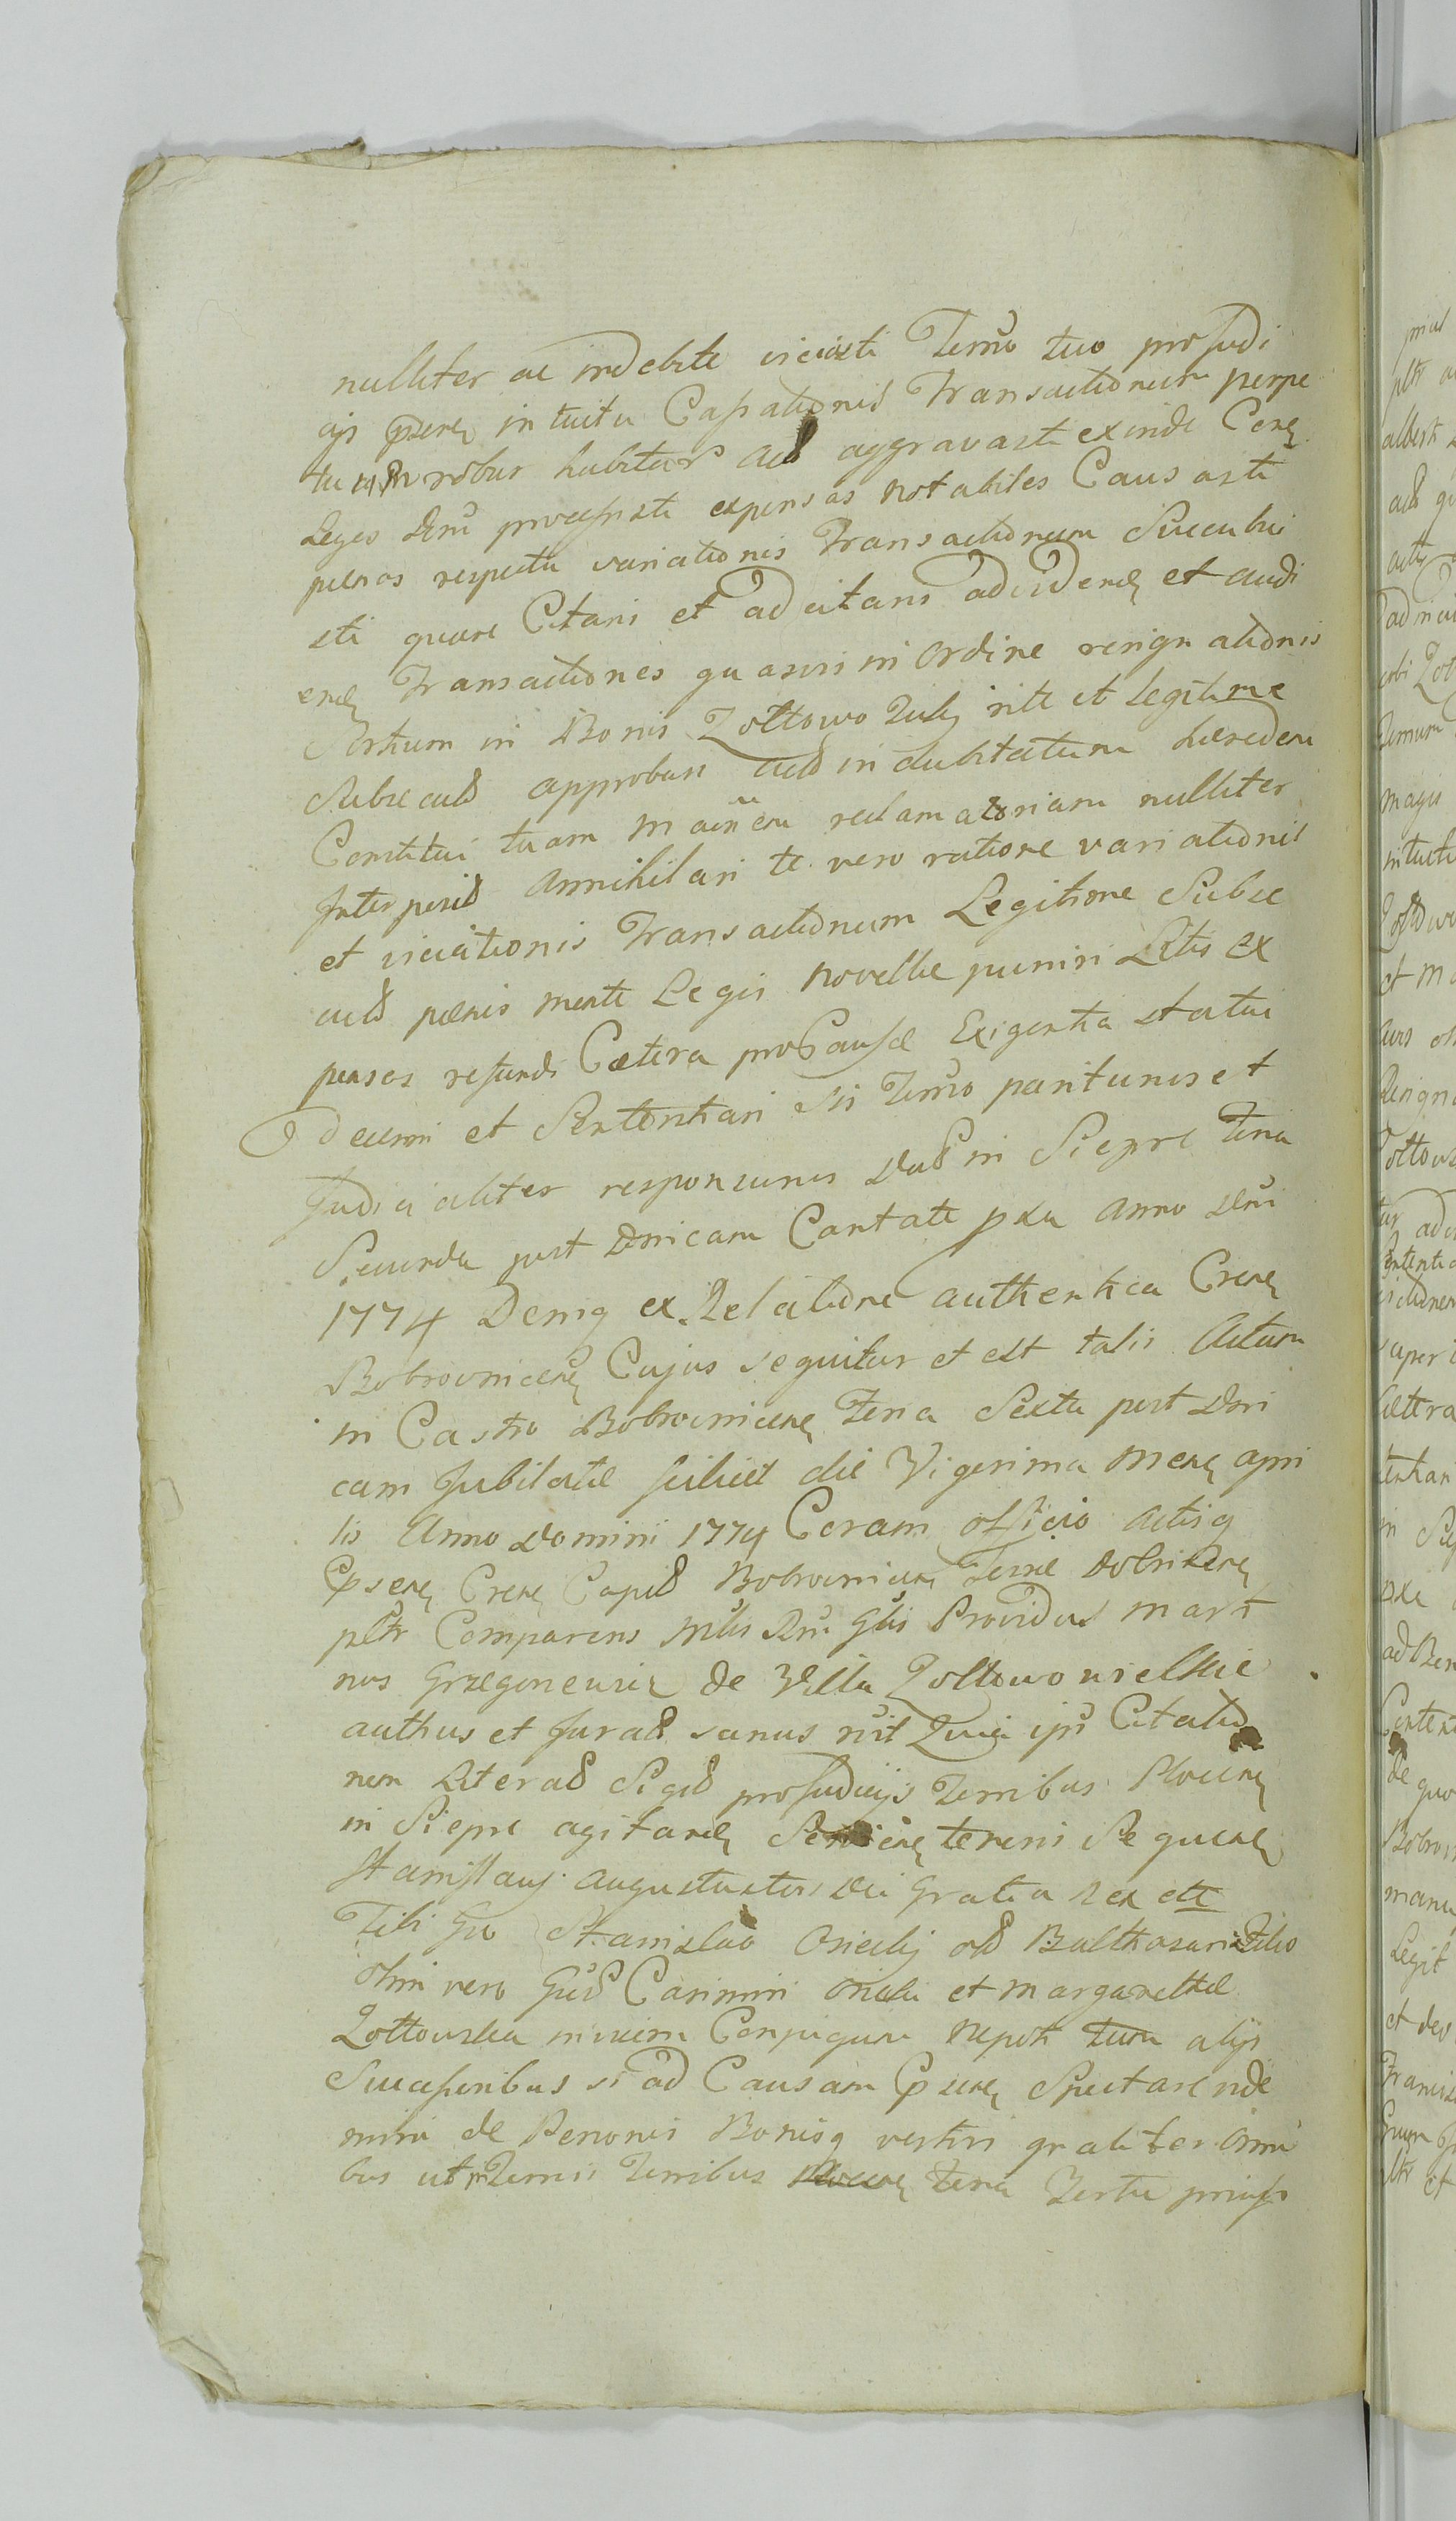 nulliter ac indebite viciasti Termo tuo pro Judi
cijs pserˀ intuitu Cassationis Transactionum perpe
tuum robur habitur aggravasti exinde
Leges Dni processisti expensas notabiles Causasti
penas respectu variationis Transactionum Succubui
sti quare Citaris et ad citaris ad vidend et audi
end Transactiones quasvis in ordine resignationis
Sortium in Bonis Zołtowo rite et legitime
Subsecutas approbari indubitatum hæredem
Constitui tuam reclamatoriam nulliter
Interposit Annihilari te vero ratione variationis
et viciationis Transactionum Legitime Subse
cut pænis mente Legis novellæ puniri Litis ex
pensas refundi Cætera pro Causæ Exigentia statui
decerni et Sententiari Sis Termo pariturus et
Judicialiter responsurus Dat in Sieprc Feria
Secunda post Dnicam Cantate pxa Anno Dni
1774 Deniq ex Relatione authentica Cren
Bobrovnicen Cujus sequitur et est talis Actum
in Castro Bobrovnicen Feria Sexta post Dni
cam Jubilate scilicet die Vigesima Mens apri
lis Anno Domini 1774 Coram officio Actisq
psen Cren Capit Bobrovnicen Terræ Dobrinen
pltr Comparens Providus Mart
nus Grzegorzewicz de Villa Zołtowo wielkie
authus et Jurat sanus rvit Quia ipse Citatio
nem Literat Sigit pro Judicijs Terribus Plocen
in Sieprc agitand tenoris Sequen
Stanislaus Augustus Dei Gratia Rex ett
Tibi Gro Stanislao Osiecki olim Balthasari Filio
olim vero Casimiri Osiecki et Margarethæ
Zołtowska invicem Conjugum Nepoti alijs
Successoribus si ad Causam psen Spectare vide
mini de Personis Bonisq vestris gnaliter omni
bus ut in Termis Terribus Plocen Feria Tertia